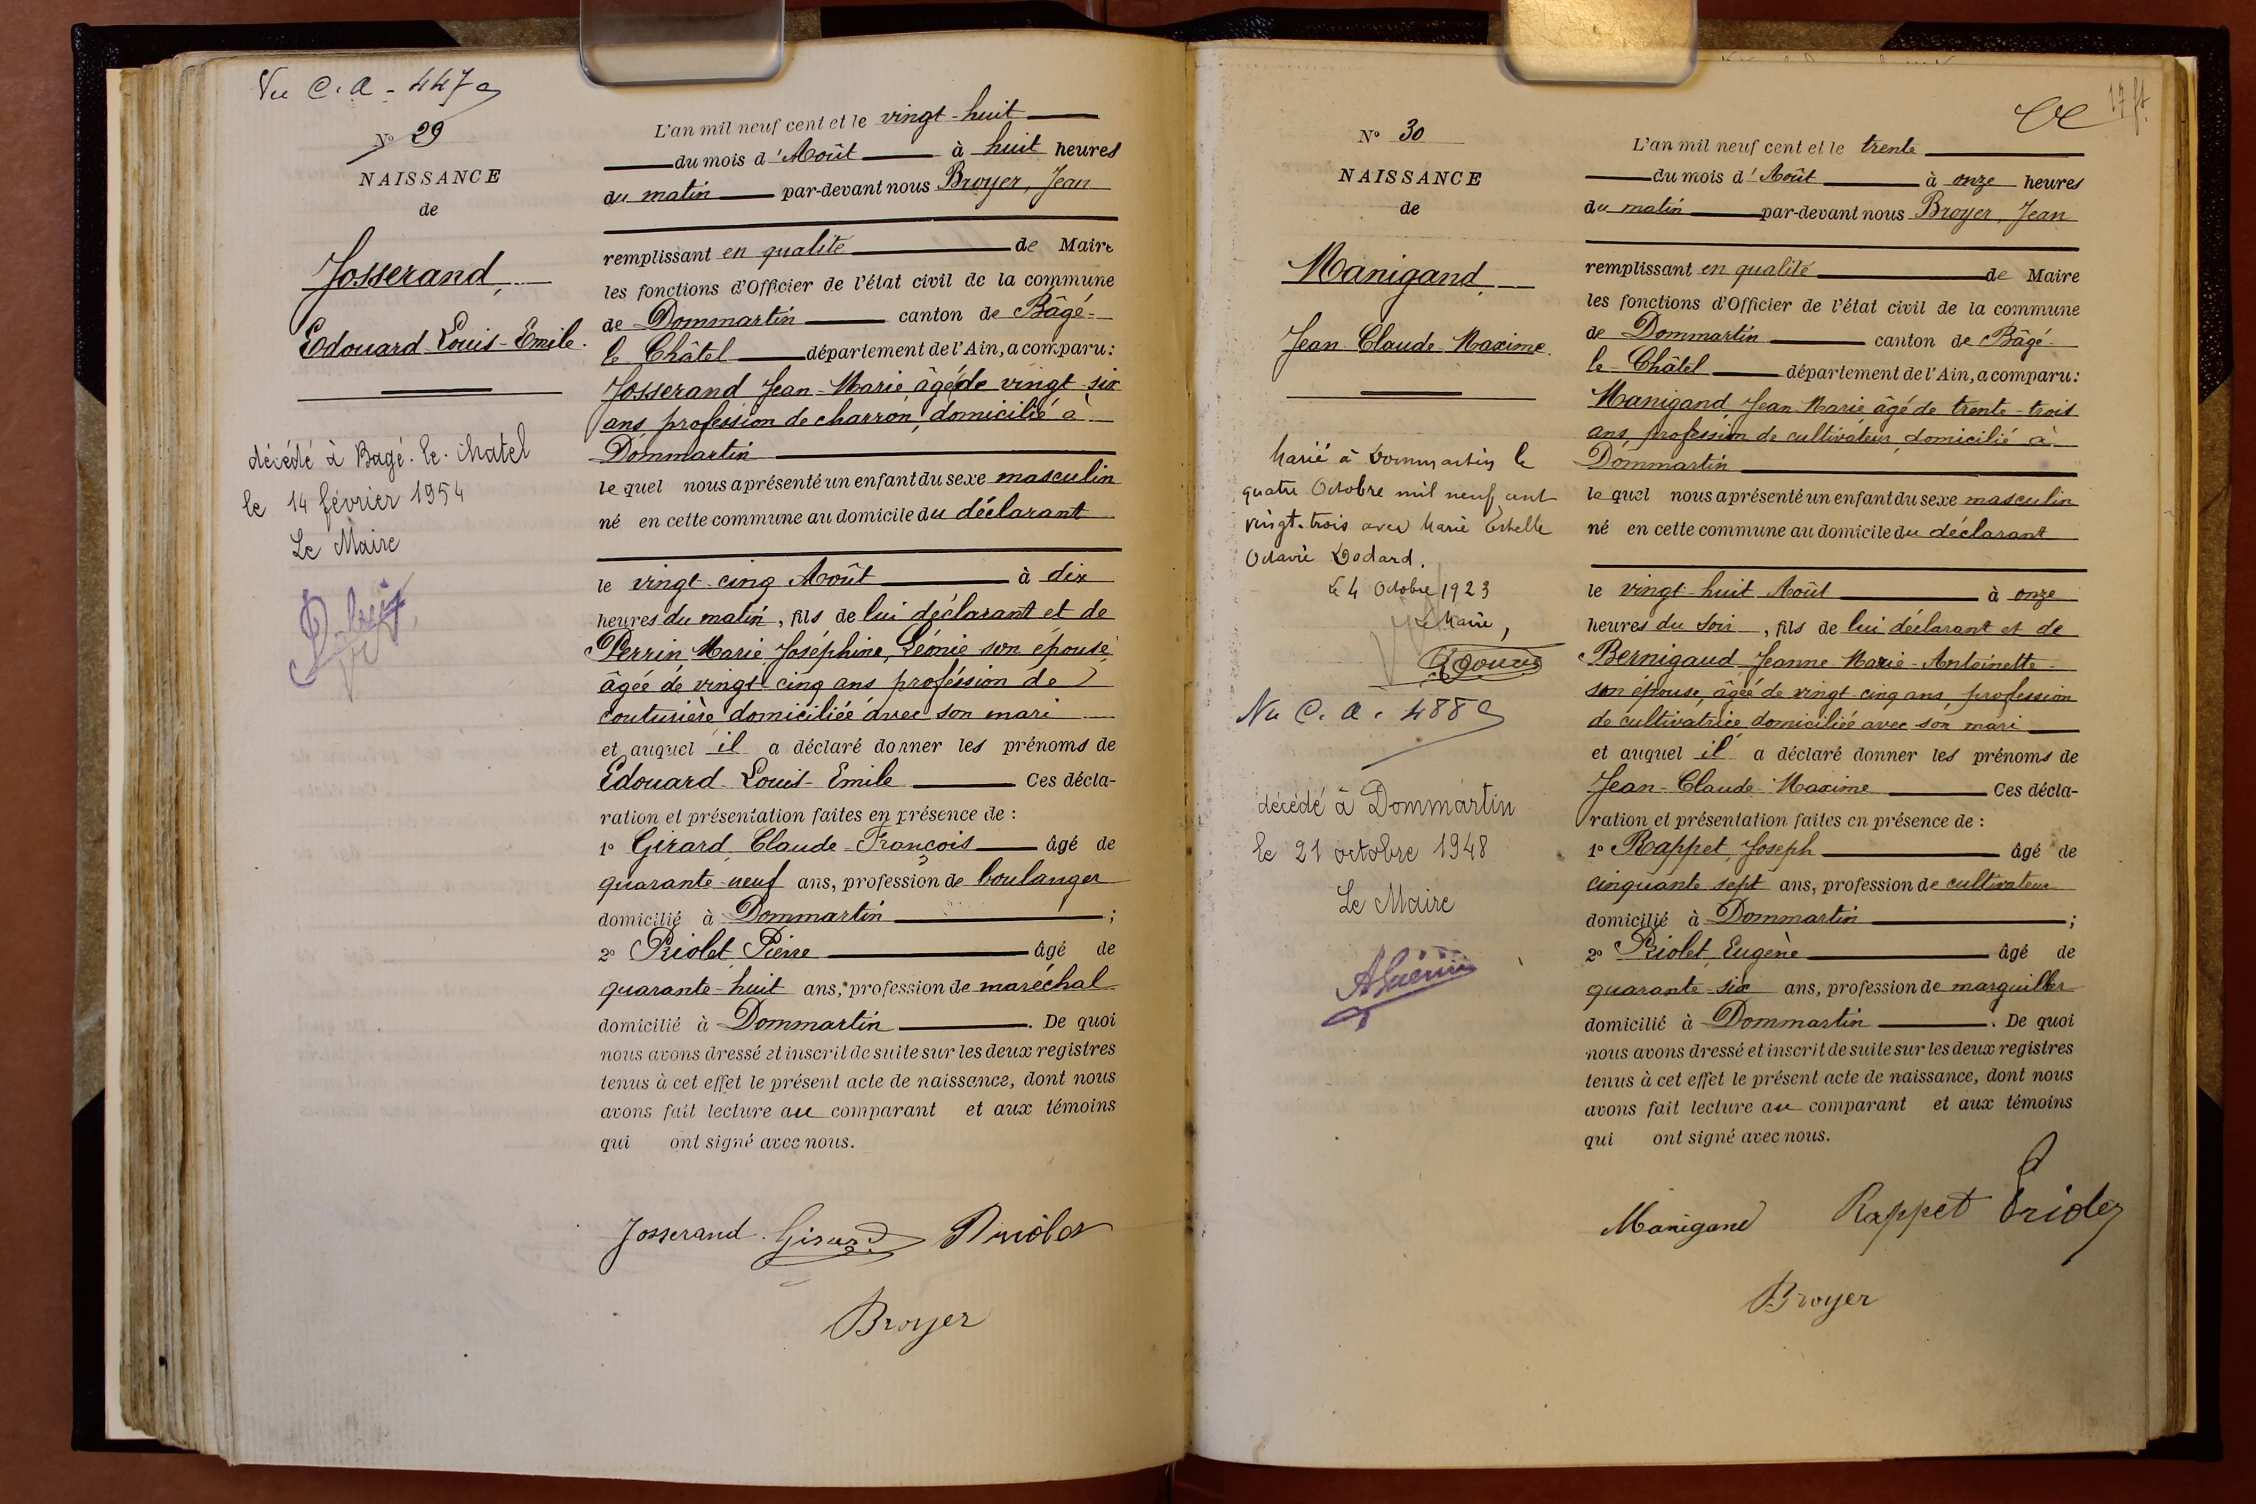 Vu C. A - 447
N° 29
NAISSANCE
de
Josserand,
Edouard Louis-Emile.
décédé à Bagé-le-Chatel
le 14 février 1954
Le Maire
L'an mil neuf cent et le vingt-huit
du mois d'Août à huit heures
du matin par-devant nous Broyer, Jean
remplissant en qualité de Maire
les fonctions d'Officier de l'état civil de la commune
de Dommartin canton de Bâgé-
le Châtel département de l'Ain, a comparu:
Josserand Jean-Marie âgé de vingt-six
ans, profession de charron, domicilié à
Dommartin
lequel nous a présenté un enfant du sexe masculin
né en cette commune au domicile du déclarant
le vingt-cinq Août à dix
heures du matin, fils de lui déclarant et de
Perrin Marie Joséphine, Léonie son épouse
âgée de vingt-cinq ans profession de
couturière domiciliée avec son mari
et auquel il a déclaré donner les prénoms de
Edouard Louis-Emile Ces décla-
ration et présentation faites en présence de:
1° Girard, Claude-François âgé de
quarante-neuf ans, profession de boulanger
domicilié à Dommartin;
2° Priolet Pierre âgé de
quarante-huit ans, profession de maréchal
domicilié à Dommartin. De quoi
nous avons dressé et inscrit de suite sur les deux registres
tenus à cet effet le présent acte de naissance, dont nous
avons fait lecture au comparant et aux témoins
qui ont signé avec nous.
Josserand Girard Priolet
Broyer
17 ft.
N° 30
NAISSANCE
de
Manigand,
Jean-Claude-Maxime.
Marié à Dommartin le
quatre Octobre mil neuf cent
vingt-trois avec Marie Estelle
Octavie Dodard.
Le 4 Octobre 1923
Le Maire,
Vu C. A. 488
décédé à Dommartin
le 21 octobre 1948
Le Maire
AGuérin
L'an mil neuf cent et le trente
du mois d'Août à onze heures
du matin par-devant nous Broyer, Jean
remplissant en qualité de Maire
les fonctions d'Officier de l'état civil de la commune
de Dommartin canton de Bâgé-
le-Châtel département de l'Ain, a comparu:
Manigand, Jean Marie âgé de trente-trois
ans, profession de cultivateur, domicilié à
Dommartin
lequel nous a présenté un enfant du sexe masculin
né en cette commune au domicile du déclarant
le vingt-huit Août à onze
heures du soir, fils de lui déclarant et de
Bernigaud Jeanne Marie-Antoinette
son épouse, âgée de vingt-cinq ans, profession
de cultivatrice domiciliée avec son mari
et auquel il a déclaré donner les prénoms de
Jean-Claude-Maxime Ces décla-
ration et présentation faites en présence de:
1° Rappet, Joseph âgé de
cinquante sept ans, profession de cultivateur
domicilié à Dommartin;
2° Priolet, Eugène âgé de
quarante-six ans, profession de marguillier
domicilié à Dommartin. De quoi
nous avons dressé et inscrit de suite sur les deux registres
tenus à cet effet le présent acte de naissance, dont nous
avons fait lecture au comparant et aux témoins
qui ont signé avec nous.
Manigand Rappet Priolet
Broyer